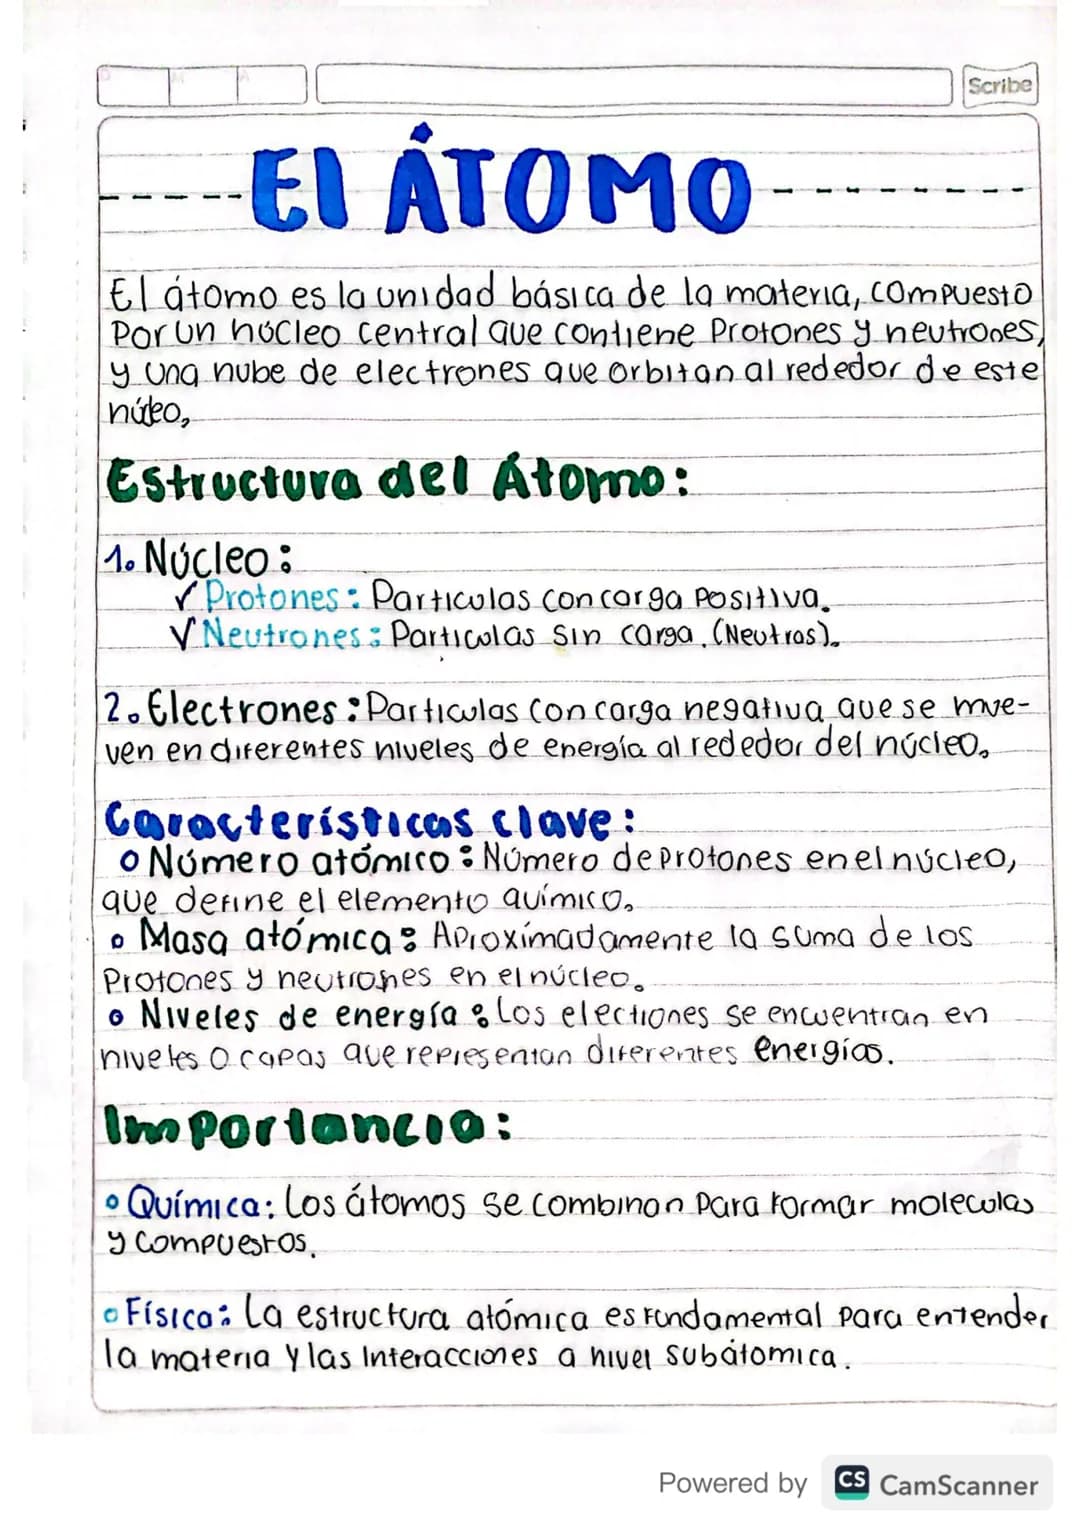 Scribe
El ÁTOMO
El átomo es la unidad básica de la materia, compuesto
Por un núcleo central que contiene Protones y neutrones,
y una nube de electrones que orbitan al rededor de este
núcleo.
Estructura del Átomo:
1. Núcleo:
✓ Protones: Particulas con carga Positiva.
✓ Neutrones: Particulas sin carga. (Neutras).
2. Electrones: Particulas con carga negativa que se mue-
ven en diferentes niveles de energía al rededor del núcleo.
Características clave:
o Número atómico: Número de protones en el núcleo,
que define el elemento químico.
o Masa atómica: Aproxímadamente la suma de los
Protones y neutrones en el núcleo.
o Niveles de energía: Los electrones se encuentran en
niveles o capas que representan diferentes energías.
Importancia:
o Química: Los átomos se combinan Para formar moleculas
y compuestos.
o Física: La estructura atómica es fundamental para entender
la materia y las Interacciones a nivel subátomica.
Powered by CS CamScanner